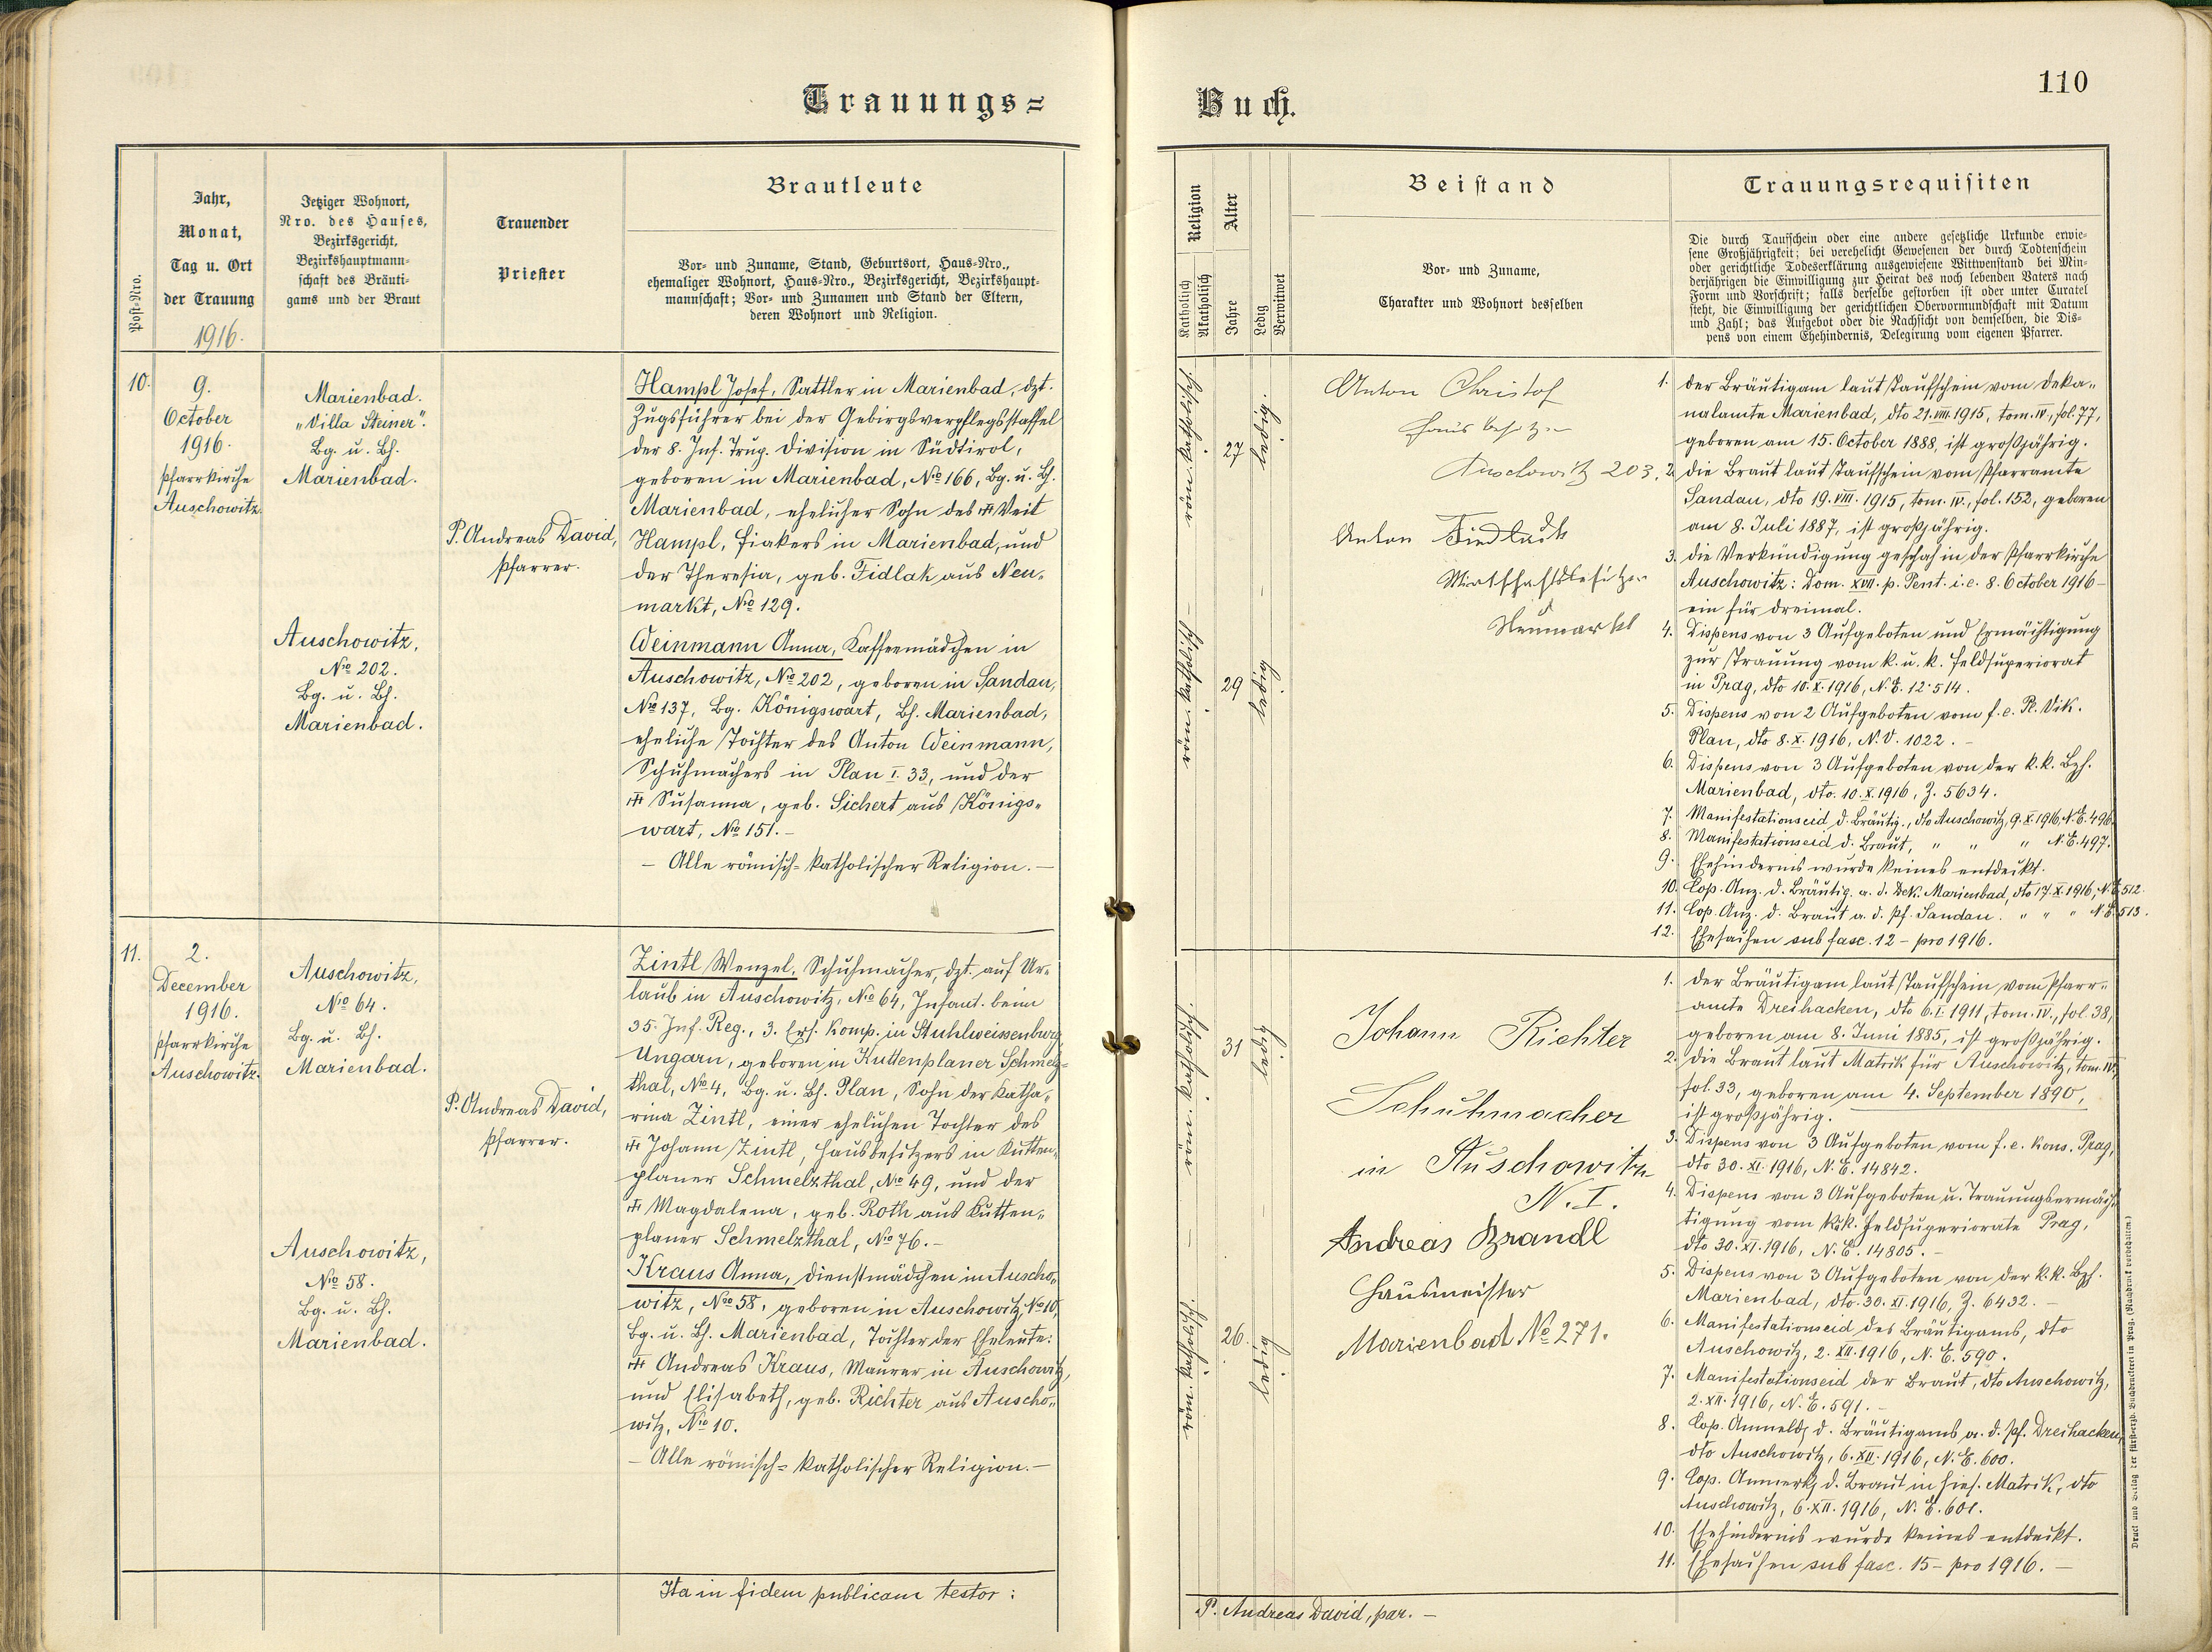 110
Trauungs=
Buch.
Post-Nro.
Jahr,
Monat,
Tag u. Ort
der Trauung
1916.
Jetziger Wohnort,
Nro. des Hauses,
Bezirksgericht,
Bezirkshauptmann-
schaft des Bräuti-
gams und der Braut
Trauender
Priester
Brautleute
Vor- und Zuname, Stand, Geburtsort, Haus-Nro.,
ehemaliger Wohnort, Haus-Nro., Bezirksgericht, Bezirkshaupt-
mannschaft; Vor- und Zunamen und Stand der Eltern,
deren Wohnort und Religion.
10.
9.
October
1916.
Pfarrkirche
Auschowitz.
Marienbad.
„Villa Steiner“.
Bg. u. Bh.
Marienbad.
Auschowitz,
No 202.
Bg. u. Bh.
Marienbad.
P. Andreas David,
Pfarrer.
Hampl Josef, Sattler in Marienbad, dzt.
Zugsführer bei der Gebirgsverpflegsstaffel
der 8. Inf. Trup. Division in Südtirol,
geboren in Marienbad, No 166, Bg. u. Bh.
Marienbad, ehelicher Sohn des ††† Veit
Hampl, Fiakers in Marienbad, und
der Theresia, geb. Fidlak aus Neu-
markt, No 129.
Weinmann Anna, Kaffeemädchen in
Auschowitz, No 202, geboren in Sandau,
No 137, Bg. Königswart, Bh. Marienbad,
eheliche Tochter des Anton Weinmann,
Schuhmachers in Plan I. 33, und der
††† Susanna, geb. Sichert aus Königs-
wart, No 151.-
- Alle römisch-katholischer Religion. -
11.
2.
December
1916.
Pfarrkirche
Auschowitz.
Auschowitz,
No 64.
Bg. u. Bh.
Marienbad.
Auschowitz,
No 58.
Bg. u. Bh.
Marienbad.
P. Andreas David,
Pfarrer.
Zintl Wenzel, Schuhmacher, dzt. auf Ur-
laub in Auschowitz, No 64, Infant. beim
35. Inf. Reg., 3. Ers. Komp. in Stuhlweissenburg,
Ungarn, geboren in Kuttenplaner Schmelz-
thal, No 4, Bg. u. Bh. Plan, Sohn der Katha-
rina Zintl, einer ehelichen Tochter des
††† Johann Zintl, Hausbesitzers in Kutten-
planer Schmelzthal, No 49, und der
††† Magdalena, geb. Roth aus Kutten-
planer Schmelzthal, No 76.-
Kraus Anna, Dienstmädchen in Auscho-
witz, No 58, geboren in Auschowitz No 10,
Bg. u. Bh. Marienbad, Tochter der Eheleute:
††† Andreas Kraus, Maurer in Auschowitz,
und Elisabeth, geb. Richter aus Auscho-
witz, No 10.
- Alle römisch-katholischer Religion.-
Ita in fidem publicam testor:
Religion
Katholisch
Akatholisch
Alter
Jahre
Ledig
Verwitwet
Beistand
Vor- und Zuname,
Charakter und Wohnort desselben
Trauungsrequisiten
Die durch Taufschein oder eine andere gesetzliche Urkunde erwie-
sene Großjährigkeit; bei verehelicht Gewesenen der durch Todtenschein
oder gerichtliche Todeserklärung ausgewiesene Wittwenstand bei Min-
derjährigen die Einwilligung zur Heirat des noch lebenden Vaters nach
Form und Vorschrift; falls derselbe gestorben ist oder unter Curatel
steht, die Einwilligung der gerichtlichen Obervormundschaft mit Datum
und Zahl; das Aufgebot oder die Nachsicht von demselben, die Dis-
pens von einem Ehehindernis, Delegirung vom eigenen Pfarrer.
röm. katholisch.
27
ledig.
röm. katholisch
29
ledig
Anton Christof
Hausbesitzer
Auschowitz 203.
Anton
Wirtschaftsbesitzer
Neumarkt
1. Der Bräutigam laut Taufschein vom Deka-
nalamte Marienbad, dto 21. VIII. 1915, tom. IV., fol. 77,
geboren am 15. October 1888, ist großjährig.
2. Die Braut laut Taufschein vom Pfarramte
Sandau, dto 19. VIII. 1915, tom. IV., fol. 152, geboren
am 8. Juli 1887, ist großjährig.
3. Die Verkündigung geschah in der Pfarrkirche
Auschowitz: Dom. XVII. p. Pent. i. e. 8. October 1916 -
ein für dreimal.
4. Dispens von 3 Aufgeboten und Ermächtigung
zur Trauung vom k. u. k. Feldsuperiorat
in Prag, dto 10. X. 1916, N. E. 12·514.
5. Dispens von 2 Aufgeboten vom f. e. B. Vik.
Plan, dto 8. X. 1916, N. V. 1022. -
6. Dispens von 3 Aufgeboten von der k. k. Bzh.
Marienbad, dto. 10. X. 1916, Z. 5634.
7. Manifestationseid d. Bräutig., dto Auschowitz, 9. X. 1916, N. E. 496.
8. Manifestationseid d. Braut, " " " N. E. 497.
9. Ehehindernis wurde keines entdeckt.
10. Cop. Anz. d. Bräutig. a. d. Dek. Marienbad, dto 17. X. 1916, N. E. 512.
11. Cop. Anz. d. Braut a. d. Pf. Sandau. " " " N. E. 513.
12. Ehesachen sub fasc. 12 - pro 1916.
röm. katholisch.
31
ledig
röm. katholisch.
26.
ledig
Johann Richter
Schuhmacher
in Auschowitz
N. I.
Andreas Brandl
Hausmeister
Marienbad No 271.
1. Der Bräutigam laut Taufschein vom Pfarr-
amte Dreihacken, dto 6. I. 1911, tom. IV., fol. 38,
geboren am 8. Juni 1885, ist großjährig.
2. Die Braut laut Matrik für Auschowitz, tom. IV.,
fol. 33, geboren am 4. September 1890,
ist großjährig.
3. Dispens von 3 Aufgeboten vom f. e. Kons. Prag,
dto 30. XI. 1916, N. E. 14842.
4. Dispens von 3 Aufgeboten u. Trauungsermäch-
tigung vom k. u. k. Feldsuperiorate Prag,
dto 30. XI. 1916, N. E. 14805. -
5. Dispens von 3 Aufgeboten von der k. k. Bzh.
Marienbad, dto. 30. XI. 1916, Z. 6432. -
6. Manifestationseid des Bräutigams, dto
Auschowitz, 2. XII. 1916, N. E. 590.
7. Manifestationseid der Braut, dto Auschowitz,
2. XII. 1916, N. E. 591. -
8. Cop. Anmeldg d. Bräutigams a. d. Pf. Dreihacken,
dto Auschowitz, 6. XII. 1916, N. E. 600.
9. Cop. Anmerkg d. Braut in hies. Matrik, dto
Auschowitz, 6. XII. 1916, N. E. 601.
10. Ehehindernis wurde keines entdeckt.
11. Ehesachen sub fasc. 15 - pro 1916. -
P. Andreas David, par. -
Druck und Verlag der fürsterzb. Buchdruckerei in Prag. (Nachdruck vorbehalten.)